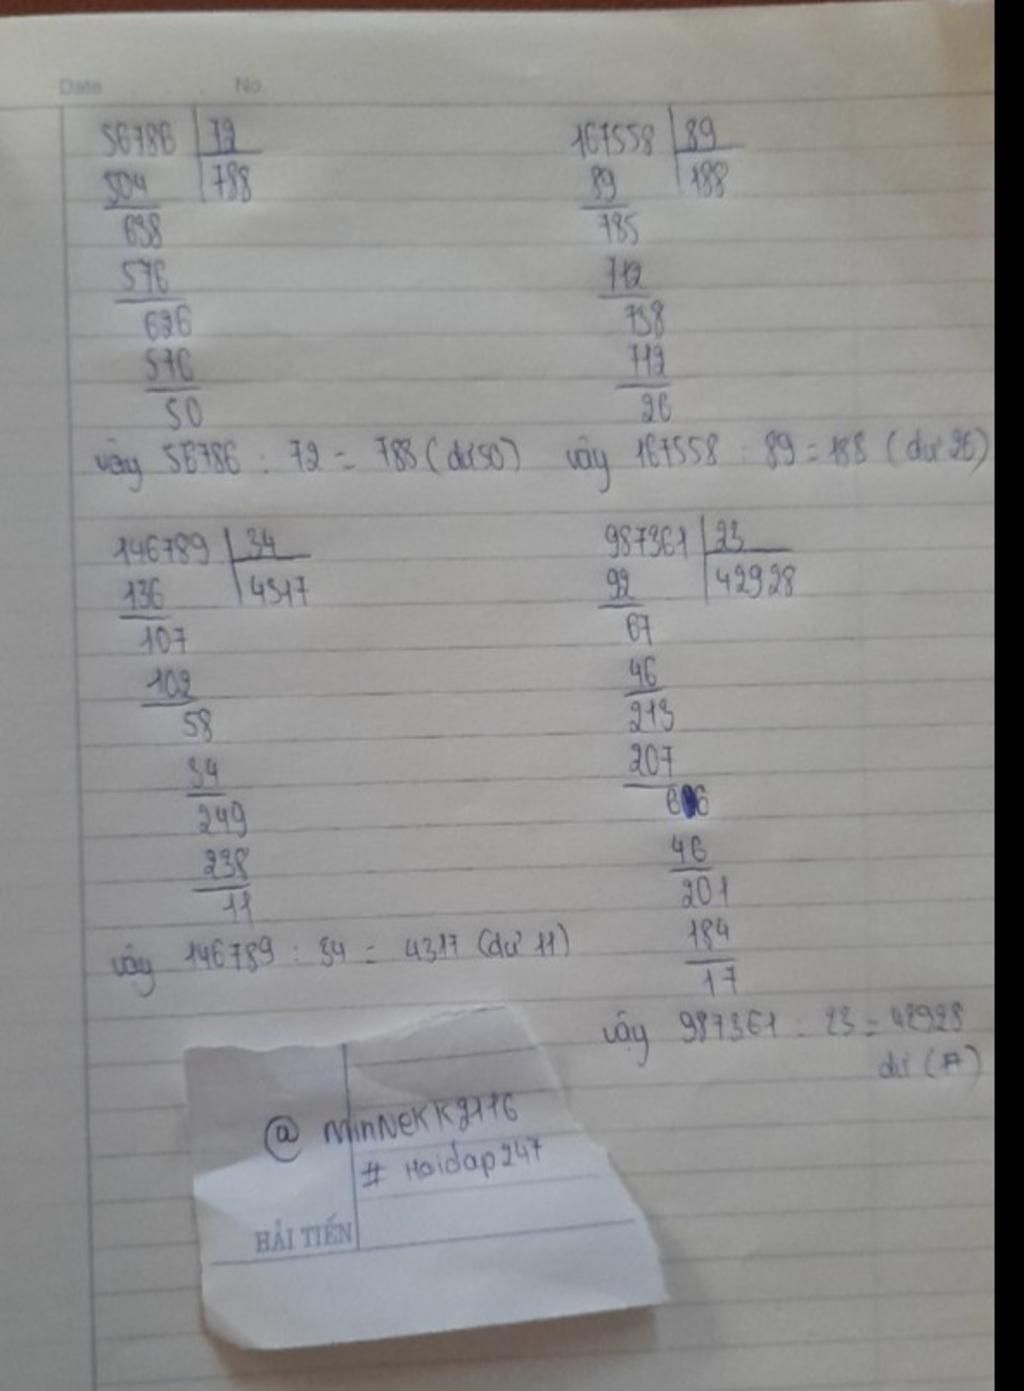 Date No.
56786 72
504 788
638
576
626
576
50
vậy 56786 : 72 = 788 (dư 50)
167558 89
89 188
785
712
738
712
26
vậy 167558 : 89 = 188 (dư 26)
146789 34
136 4317
107
102
58
34
249
238
11
vậy 146789 : 34 = 4317 (dư 11)
987361 23
92 42928
67
46
213
207
66
46
201
184
17
vậy 987361 : 23 = 42928
dư (17)
@ MinNeKK2116
# Hoidap247
HẢI TIẾN